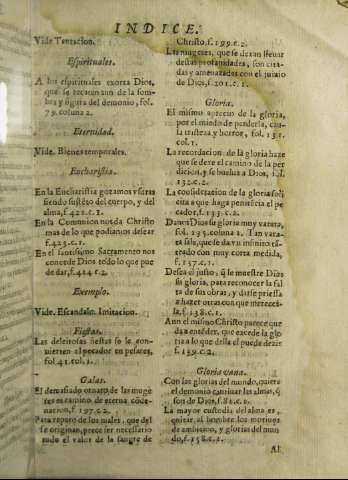 INDICE.
Vide Tentacion.
Espirituales.
A los espirituales exorta Dios,
que se recaten aun de la som-
bra y figura del demonio, fol.
79. coluna 2.
Eternidad.
Vide. Bienes temporales.
Eucharistia.
En la Eucharistia gozamos
siendo sustẽto del cuerpo, y del
alma, f. 421. c. 1.
En la Comunion nos da Christo
mas de lo que podiamos desear
f. 423. c. 1.
En el santissimo Sacramento nos
concede Dios todo lo que pue
de dar, f. 424. c. 2.
Exemplo.
Vide. Escandalo. Imitacion.
Fiestas.
Las deleitosas fiestas se le con-
uierten al pecador en pesares,
fol. 41. col. 1.
Galas.
El demasiado ornato de las muge
res es camino de eterna cõde-
nacion, f. 197. c. 2.
Para reparo de los males, que del
se originan, parece ser necessario
todo el valor de la sangre de
Christo, f. 199. c. 2.
Las mugeres, que se dexan lleuar
destas profanidades, son cita-
das y amenazadas con el juizio
de Dios, f. 201. c. 1.
Gloria.
El mismo aprecio de la gloria,
por el miedo de perderla, cau-
sa tristeza y horror, fol. 131.
col. 1.
La recordacion de la gloria haze
que se dexe el camino de la per
dicion, y se buelua a Dios, fol.
132. c. 2.
La consideracion de la gloria soli
cita a que haga penitẽcia el pe
cador, f. 133. c. 2.
Danos Dios su gloria muy varata,
fol. 135. coluna 2. Tan vara-
ta sale, que se da vn infinito es-
trado con muy corta medida,
f. 137. c. 1.
Desea el justo, q̃ le muestre Dios
su gloria, para reconocer la fal
ta de sus obras, y darse priessa
a hazer otras con que merecer-
la, f. 138. c. 1.
Aun el mismo Christo parece que
da a entẽder, que excede la glo
ria a lo que della el puede dezir
f. 139. c. 2.
Gloria vana.
Con las glorias del mundo, quiere
el demonio cautiuar las almas, q̃
son de Dios, f. 81. c. 1.
La mayor custodia del alma es,
quitar al hombre los motiuos
de ambicion, y glorias del mun
do, f. 158. c. 1.
Al